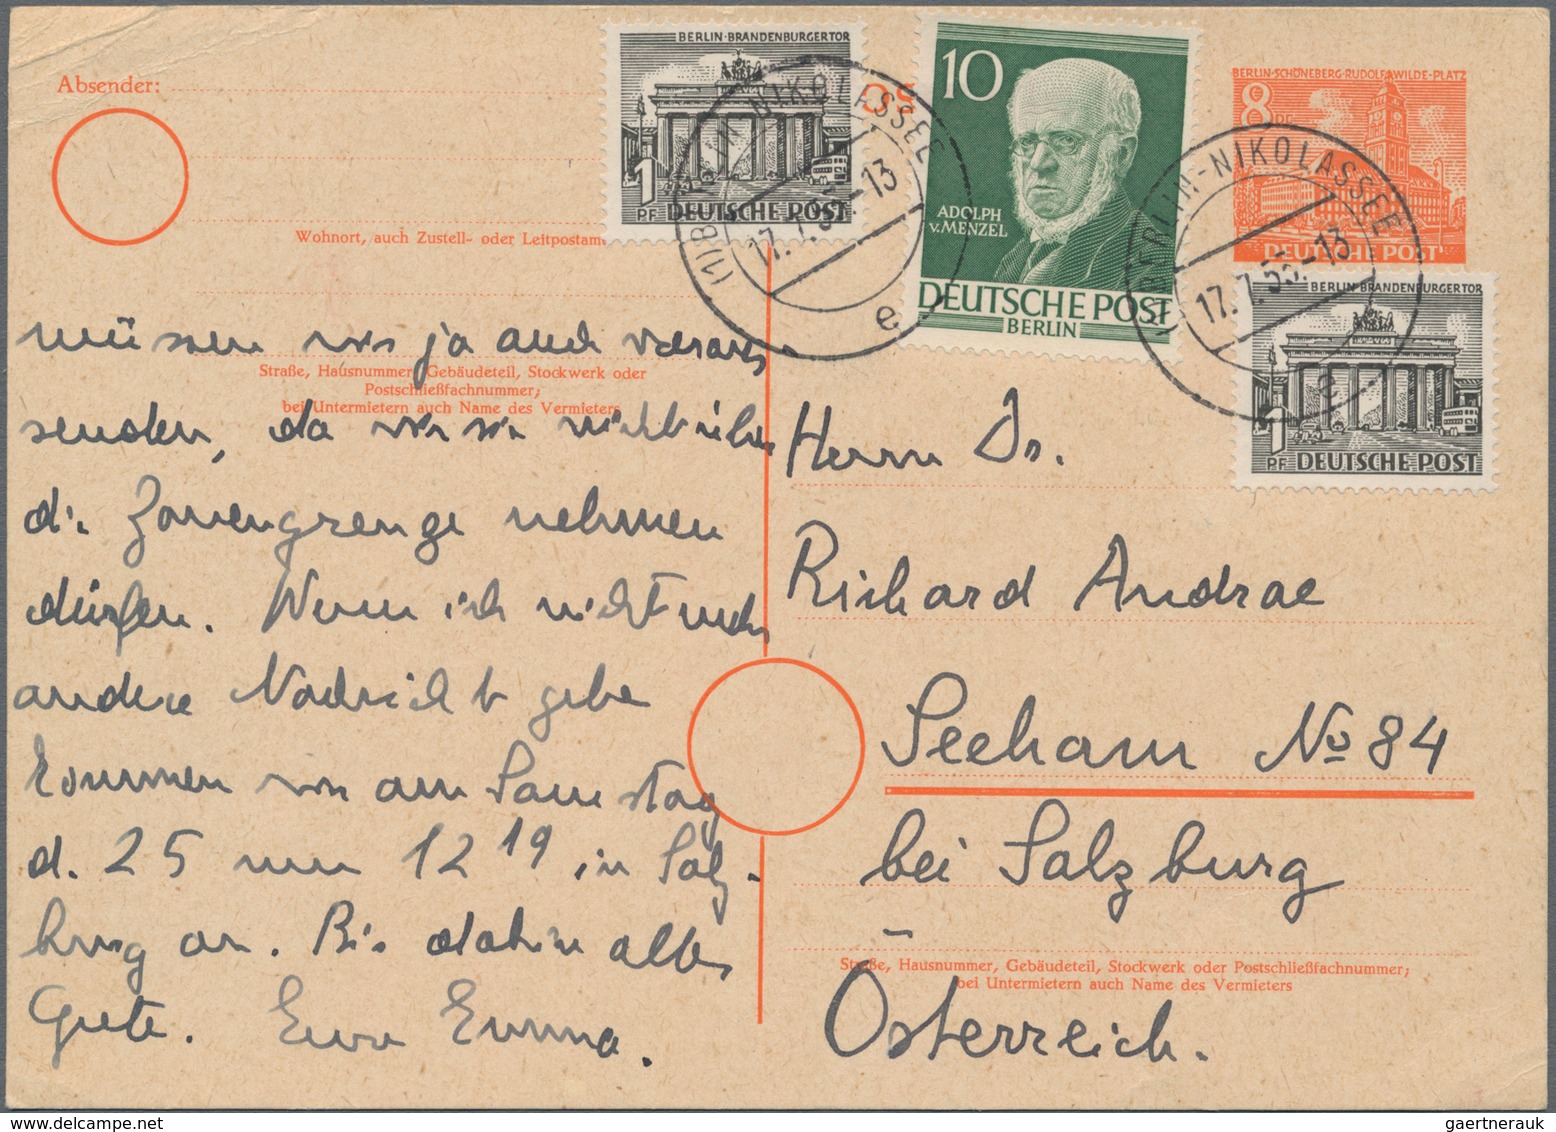 Absender:
BERLIN-BRANDENBURGER TOR
1 PF DEUTSCHE POST
10
ADOLPH
v. MENZEL
DEUTSCHE POST
BERLIN
BERLIN-SCHÖNEBERG-RUDOLF-WILDE-PLATZ
8 PF
DEUTSCHE POST
BERLIN-BRANDENBURGER TOR
1 PF DEUTSCHE POST
(1) BERLIN-NIKOLASSEE
17.7.53.-13
e
(1) BERLIN-NIKOLASSEE
17.7.53.-13
e
Wohnort, auch Zustell- oder Leitpostam
Straße, Hausnummer, Gebäudeteil, Stockwerk oder
Postschließfachnummer;
bei Untermietern auch Name des Vermieters
müssen wir ja auch voraus
senden, da wir sie nicht über
die Zonengrenze nehmen
dürfen. Wenn ich nicht noch
andere Nachricht gebe
kommen wir am Samstag
d. 25 um 12 19 in Salz-
burg an. Bis dahin alles
Gute. Eure Emma.
Herrn Dr.
Richard Andrae
Seeham No 84
bei Salzburg
Österreich.
Straße, Hausnummer, Gebäudeteil, Stockwerk oder Postschließfachnummer;
bei Untermietern auch Name des Vermieters
gaertnerauk @ www.delcampe.net